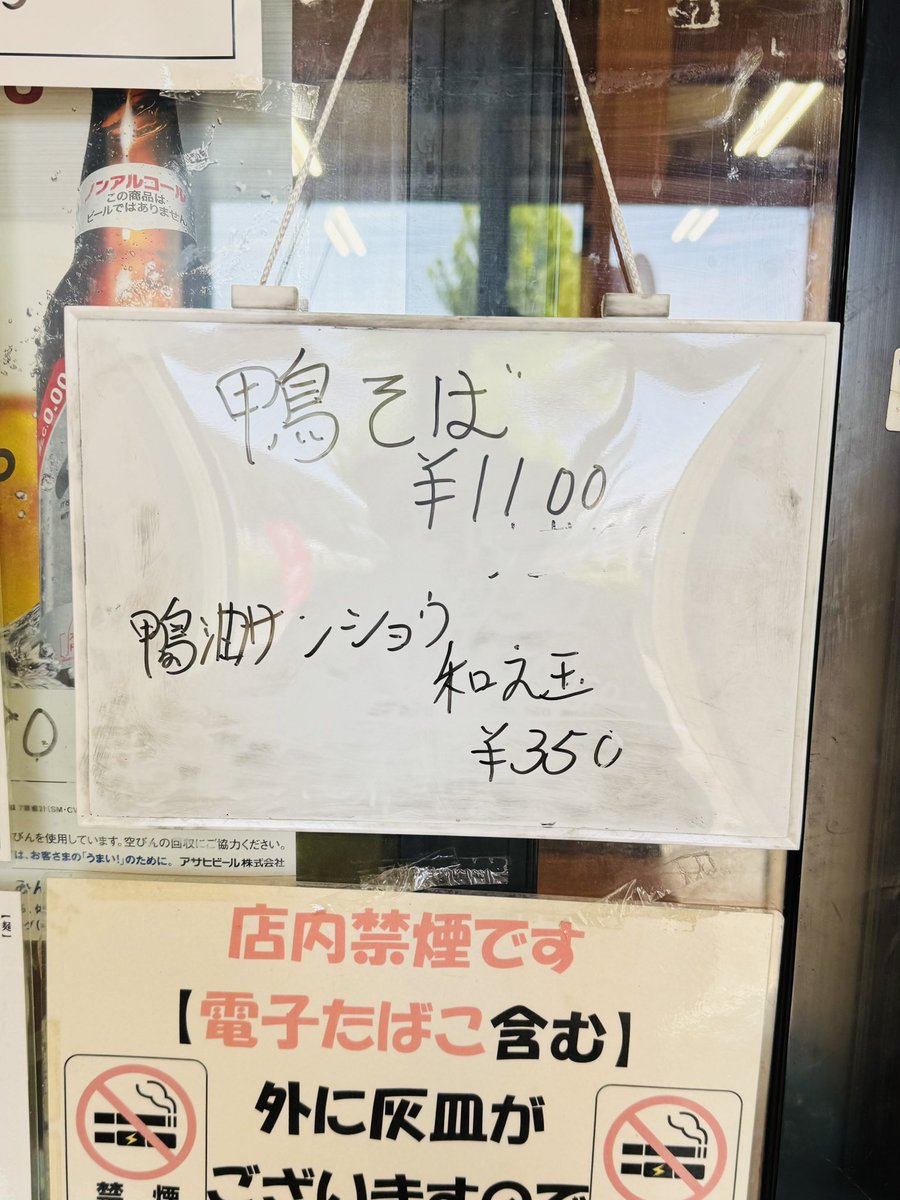 ノンアルコール
この商品は
ビールではありません
0.00
鴨そば
¥1100
鴨油サンショウ
和え玉
¥350
びんを使用しています。空びんの回収にご協力ください。
は、お客さまの「うまい!」のために。アサヒビール株式会社
店内禁煙です
【電子たばこ含む】
外に灰皿が
ございますので
禁煙